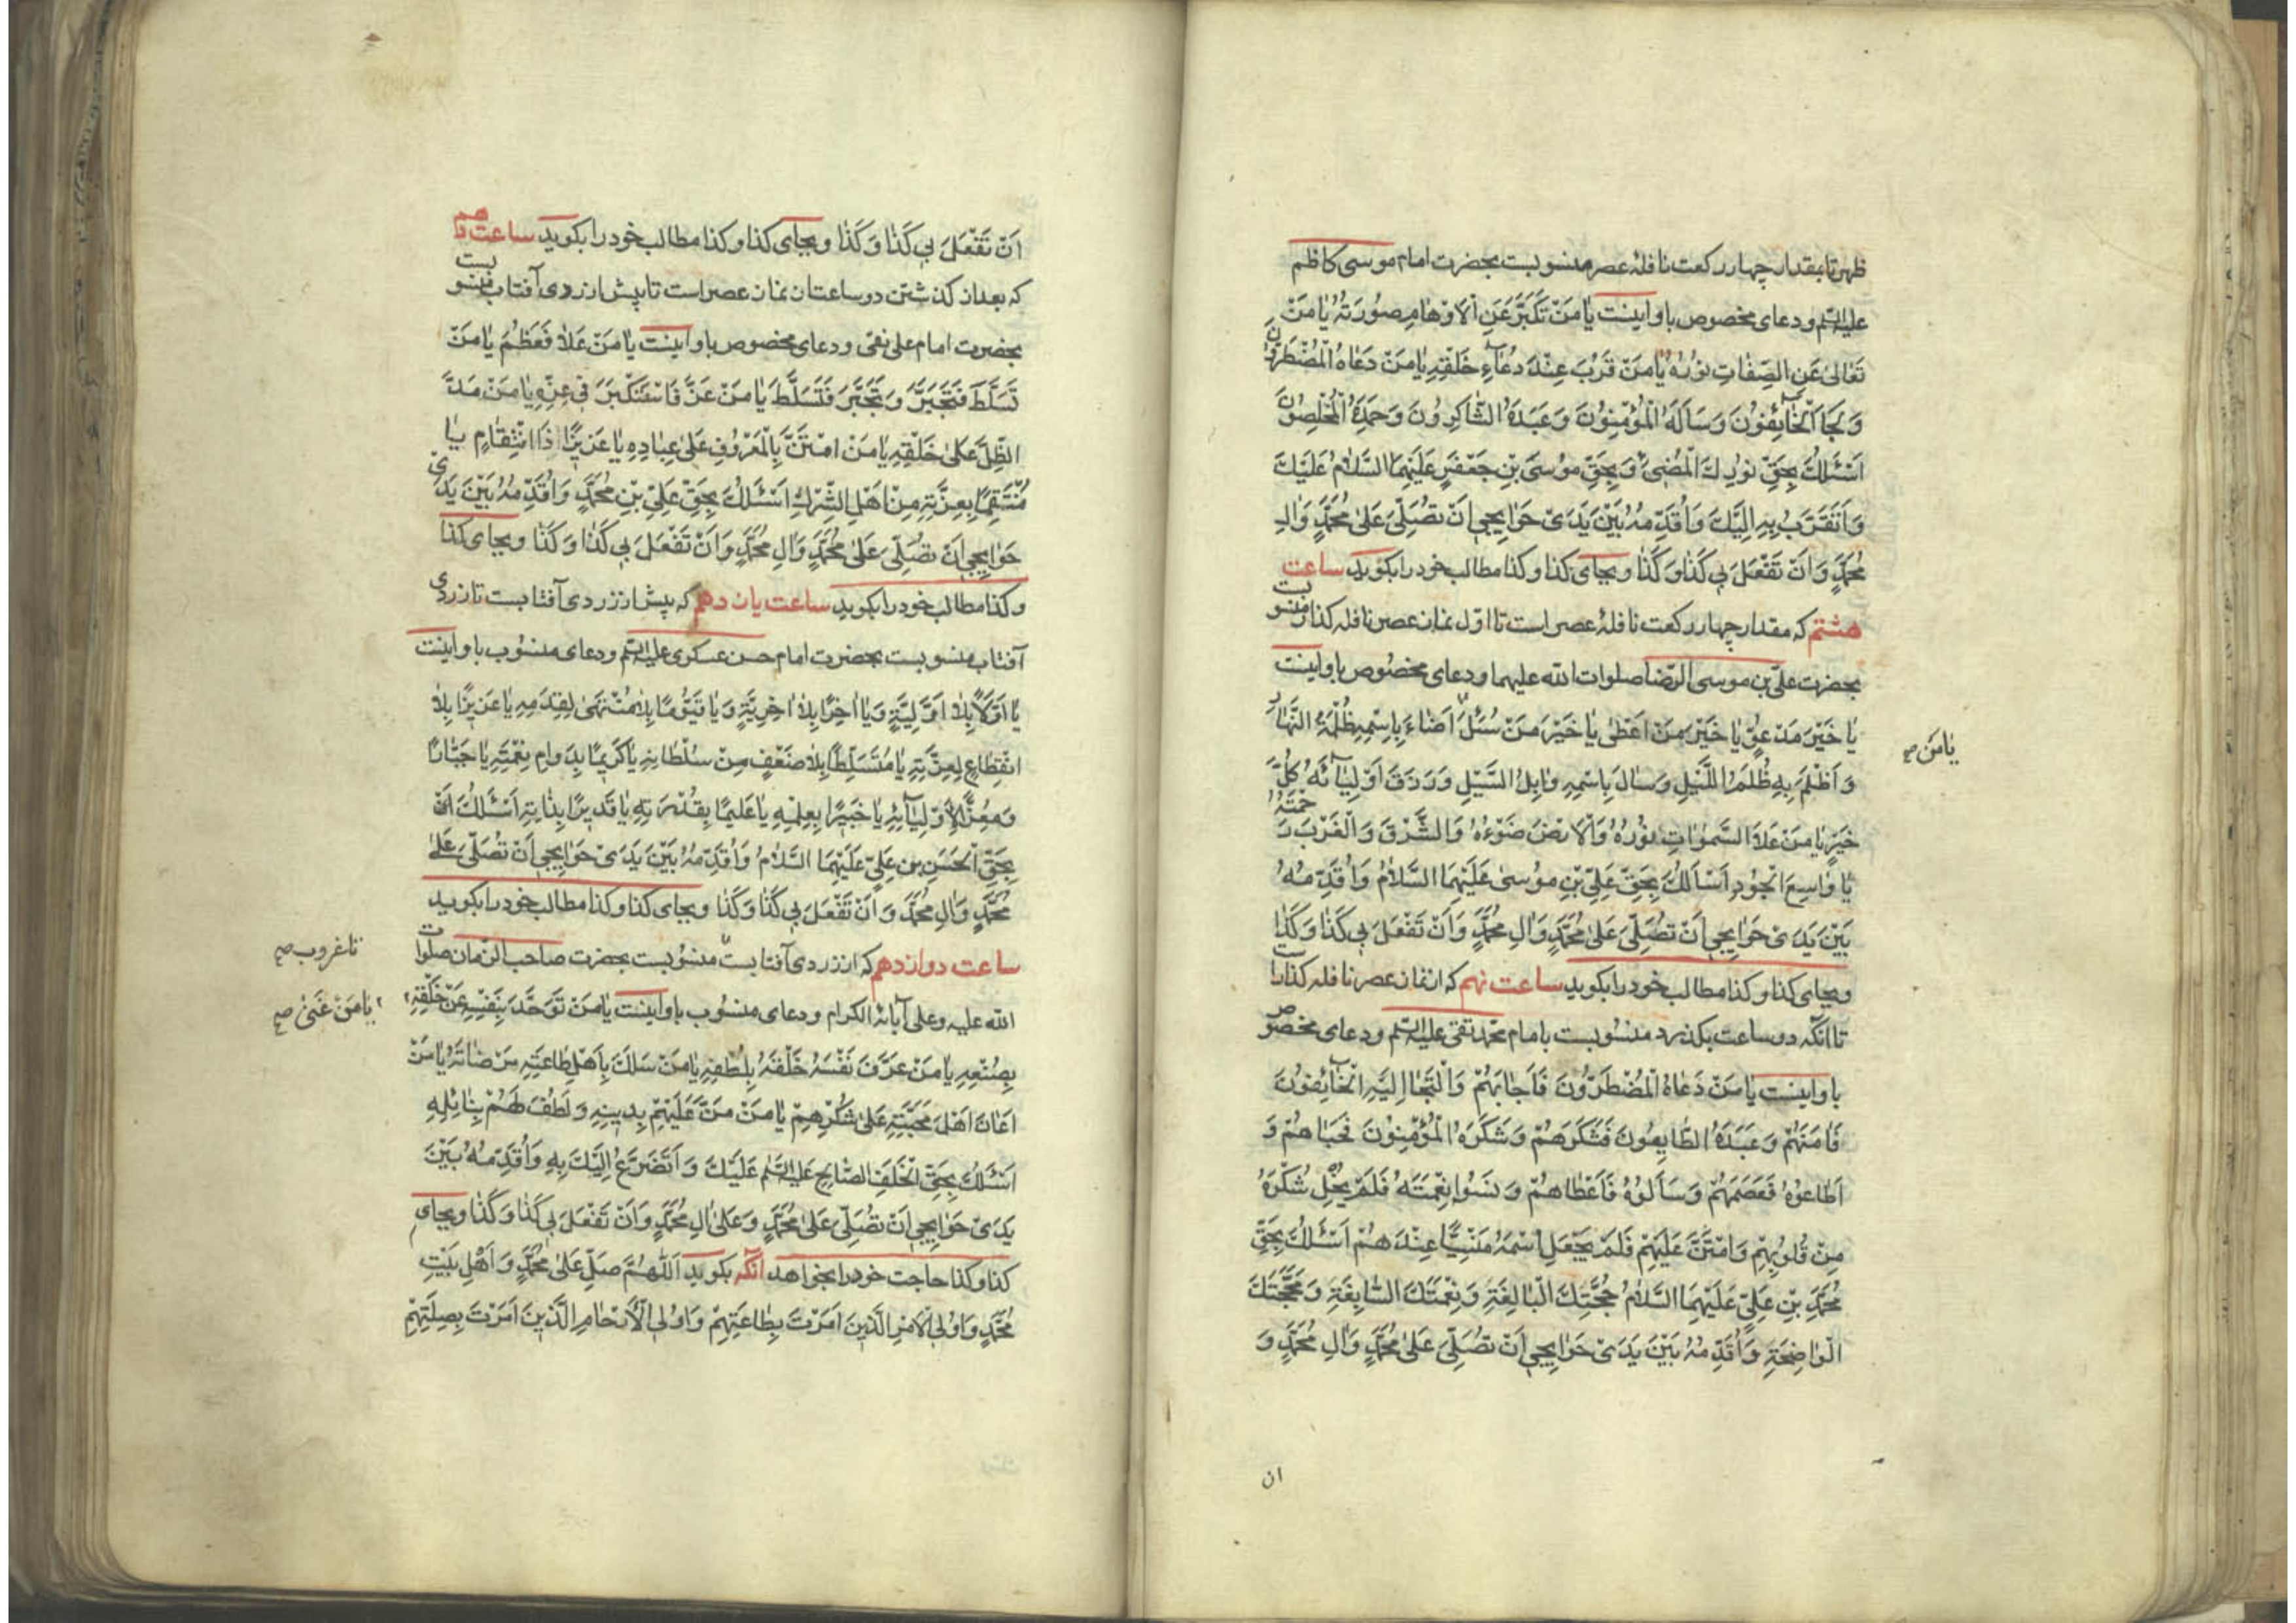 ظهر تا بمقدار چهار ركعت نافلهٔ عصر منسوبست بحضرت امام موسی كاظم
علیه السلم ودعای مخصوص باو اینست یٰا مَنْ تَكَبَّرَ عَنِ الْاَوْهٰامِ صُورَتُهُ یٰا مَنْ
تَعٰالیٰ عَنِ الصِّفٰاتِ نُورُهُ یٰا مَنْ قَرُبَ عِنْدَ دُعٰآءِ خَلْقِهِ یٰا مَنْ دَعٰاهُ الْمُضْطَرُّونَ
وَ لَجَاَ الْخٰآئِفُونَ وَ سَاَلَهُ الْمُؤْمِنُونَ وَ عَبَدَهُ الشّٰاكِرُونَ وَ حَمِدَهُ الْمُخْلِصُونَ
اَسْئَلُكَ بِحَقِّ نُورِكَ الْمُضِیءِ وَ بِحَقِّ مُوسَی بْنِ جَعْفَرٍ عَلَیْهِمَا السَّلٰامُ عَلَیْكَ
وَ اَتَقَرَّبُ بِهِ اِلَیْكَ وَ اُقَدِّمُهُ بَیْنَ یَدَیْ حَوٰایِجِی اَنْ تُصَلِّیَ عَلیٰ مُحَمَّدٍ وَ اٰلِ
مُحَمَّدٍ وَ اَنْ تَفْعَلَ بِی كَذٰا وَ كَذٰا وبجای كذا وكذا مطالب خود را بكوید ساعت
هشتم كه مقدار چهار ركعت نافلهٔ عصر است تا اوّل نماز عصر نافله كذار منسوبست
بحضرت علی بن موسی الرّضا صلوات الله علیهما ودعای مخصوص باو اینست
یٰا خَیْرَ مَدْعُوٍّ یٰا خَیْرَ مَنْ اَعْطیٰ یٰا خَیْرَ مَنْ سُئِلَ اَضٰاءَ بِاسْمِهِ ظُلْمَةُ النَّهٰارِ
یٰا مَنْ صح
وَ اَظْلَمَ بِهِ ظُلَمُ اللَّیْلِ وَ سٰالَ بِاسْمِهِ وٰابِلُ السَّیْلِ وَ رَزَقَ اَوْلِیٰآئَهُ كُلَّ
خَیْرٍ یٰا مَنْ عَلَا السَّمٰوٰاتِ نُورُهُ وَ الْاَرْضَ ضَوْءُهُ وَ الشَّرْقَ وَ الْغَرْبَ رَحْمَتُهُ
یٰا وٰاسِعَ الْجُودِ اَسْاَلُكَ بِحَقِّ عَلِیِّ بْنِ مُوسیٰ عَلَیْهِمَا السَّلٰامُ وَ اُقَدِّمُهُ
بَیْنَ یَدَیْ حَوٰایِجِی اَنْ تُصَلِّیَ عَلیٰ مُحَمَّدٍ وَ اٰلِ مُحَمَّدٍ وَ اَنْ تَفْعَلَ بِی كَذٰا وَ كَذٰا
وبجای كذا وكذا مطالب خود را بكوید ساعت نهم كه از نماز عصر نافله كذارست
تا آنكه دو ساعت بكذرد منسوبست بامام محمّد تقی علیه السلم ودعای مخصوص
باو اینست یٰا مَنْ دَعٰاهُ الْمُضْطَرُّونَ فَاَجٰابَهُمْ وَ الْتَجَاَ اِلَیْهِ الْخٰآئِفُونَ
فَاٰمَنَهُمْ وَ عَبَدَهُ الطّٰایِعُونَ فَشَكَرَهُمْ وَ شَكَرَهُ الْمُؤْمِنُونَ فَحَبٰاهُمْ وَ
اَطٰاعُوهُ فَعَصَمَهُمْ وَ سَاَلُوهُ فَاَعْطٰاهُمْ وَ نَسُوا نِعْمَتَهُ فَلَمْ یُخْلِ شُكْرَهُ
مِنْ قُلُوبِهِمْ وَ امْتَنَّ عَلَیْهِمْ فَلَمْ یَجْعَلِ اسْمَهُ مَنْسِیًّا عِنْدَهُمْ اَسْئَلُكَ بِحَقِّ
مُحَمَّدِ بْنِ عَلِیٍّ عَلَیْهِمَا السَّلٰامُ حُجَّتِكَ الْبٰالِغَةِ وَ نِعْمَتِكَ السّٰابِغَةِ وَ مَحَجَّتِكَ
الْوٰاضِحَةِ وَ اُقَدِّمُهُ بَیْنَ یَدَیْ حَوٰایِجِی اَنْ تُصَلِّیَ عَلیٰ مُحَمَّدٍ وَ اٰلِ مُحَمَّدٍ وَ
ان
اَنْ تَفْعَلَ بِی كَذٰا وَ كَذٰا وبجای كذا وكذا مطالب خود را بكوید ساعت دهم
كه بعد از كذشتن دو ساعت از نماز عصر است تا پیش از زردی آفتاب منسوبست
بحضرت امام علی نقی ودعای مخصوص باو اینست یٰا مَنْ عَلٰا فَعَظُمَ یٰا مَنْ
تَسَلَّطَ فَتَجَبَّرَ وَ تَجَبَّرَ فَتَسَلَّطَ یٰا مَنْ عَزَّ فَاسْتَكْبَرَ فِی عِزِّهِ یٰا مَنْ مَدَّ
الظِّلَّ عَلیٰ خَلْقِهِ یٰا مَنْ امْتَنَّ بِالْمَعْرُوفِ عَلیٰ عِبٰادِهِ یٰا عَزِیزًا ذَا انْتِقٰامٍ یٰا
مُنْتَقِمًا بِعِزَّتِهِ مِنْ اَهْلِ الشِّرْكِ اَسْئَلُكَ بِحَقِّ عَلِیِّ بْنِ مُحَمَّدٍ وَ اُقَدِّمُهُ بَیْنَ یَدَیْ
حَوٰایِجِی اَنْ تُصَلِّیَ عَلیٰ مُحَمَّدٍ وَ اٰلِ مُحَمَّدٍ وَ اَنْ تَفْعَلَ بِی كَذٰا وَ كَذٰا وبجای كذا
وكذا مطالب خود را بكوید ساعت یازدهم كه پیش از زردی آفتابست تا زردی
آفتاب منسوبست بحضرت امام حسن عسكری علیه السلم ودعای منسوب باو اینست
یٰا اَوَّلًا بِلٰا اَوَّلِیَّةٍ وَ یٰا اٰخِرًا بِلٰا اٰخِرِیَّةٍ وَ یٰا قَیُّومًا بِلٰا مُنْتَهیٰ لِقِدَمِهِ یٰا عَزِیزًا بِلٰا
انْقِطٰاعٍ لِعِزَّتِهِ یٰا مُتَسَلِّطًا بِلٰا ضَعْفٍ مِنْ سُلْطٰانِهِ یٰا كَرِیمًا بِدَوٰامِ نِعْمَتِهِ یٰا جَبّٰارًا
وَ مُعِزًّا لِاَوْلِیٰآئِهِ یٰا خَبِیرًا بِعِلْمِهِ یٰا عَلِیمًا بِقُدْرَتِهِ یٰا قَدِیرًا بِذٰاتِهِ اَسْئَلُكَ اَنْ
بِحَقِّ الْحَسَنِ بْنِ عَلِیٍّ عَلَیْهِمَا السَّلٰامُ وَ اُقَدِّمُهُ بَیْنَ یَدَیْ حَوٰایِجِی اَنْ تُصَلِّیَ عَلیٰ
مُحَمَّدٍ وَ اٰلِ مُحَمَّدٍ وَ اَنْ تَفْعَلَ بِی كَذٰا وَ كَذٰا وبجای كذا وكذا مطالب خود را بكوید
ساعت دوازدهم كه از زردی آفتابست منسوبست بحضرت صاحب الزمان صلوات
تا غروب صح
الله علیه وعلی آبائه الكرام ودعای منسوب باو اینست یٰا مَنْ تَوَحَّدَ بِنَفْسِهِ عَنْ خَلْقِهِ
یٰا مَنْ غَنِیَ صح
بِصُنْعِهِ یٰا مَنْ عَرَّفَ نَفْسَهُ خَلْقَهُ بِلُطْفِهِ یٰا مَنْ سَلَكَ بِاَهْلِ طٰاعَتِهِ مَرْضٰاتَهُ یٰا مَنْ
اَعٰانَ اَهْلَ مَحَبَّتِهِ عَلیٰ شُكْرِهِمْ یٰا مَنْ مَنَّ عَلَیْهِمْ بِدِینِهِ وَ لَطُفَ لَهُمْ بِنٰائِلِهِ
اَسْئَلُكَ بِحَقِّ الْخَلَفِ الصّٰالِحِ علیه السلم عَلَیْكَ وَ اَتَضَرَّعُ اِلَیْكَ بِهِ وَ اُقَدِّمُهُ بَیْنَ
یَدَیْ حَوٰایِجِی اَنْ تُصَلِّیَ عَلیٰ مُحَمَّدٍ وَ عَلیٰ اٰلِ مُحَمَّدٍ وَ اَنْ تَفْعَلَ بِی كَذٰا وَ كَذٰا وبجای
كذا وكذا حاجت خود را بخواهد آنكه بكوید اَللّٰهُمَّ صَلِّ عَلیٰ مُحَمَّدٍ وَ اَهْلِ بَیْتِ
مُحَمَّدٍ وَ اُولِی الْاَمْرِ الَّذِینَ اَمَرْتَ بِطٰاعَتِهِمْ وَ اُولِی الْاَرْحٰامِ الَّذِینَ اَمَرْتَ بِصِلَتِهِمْ